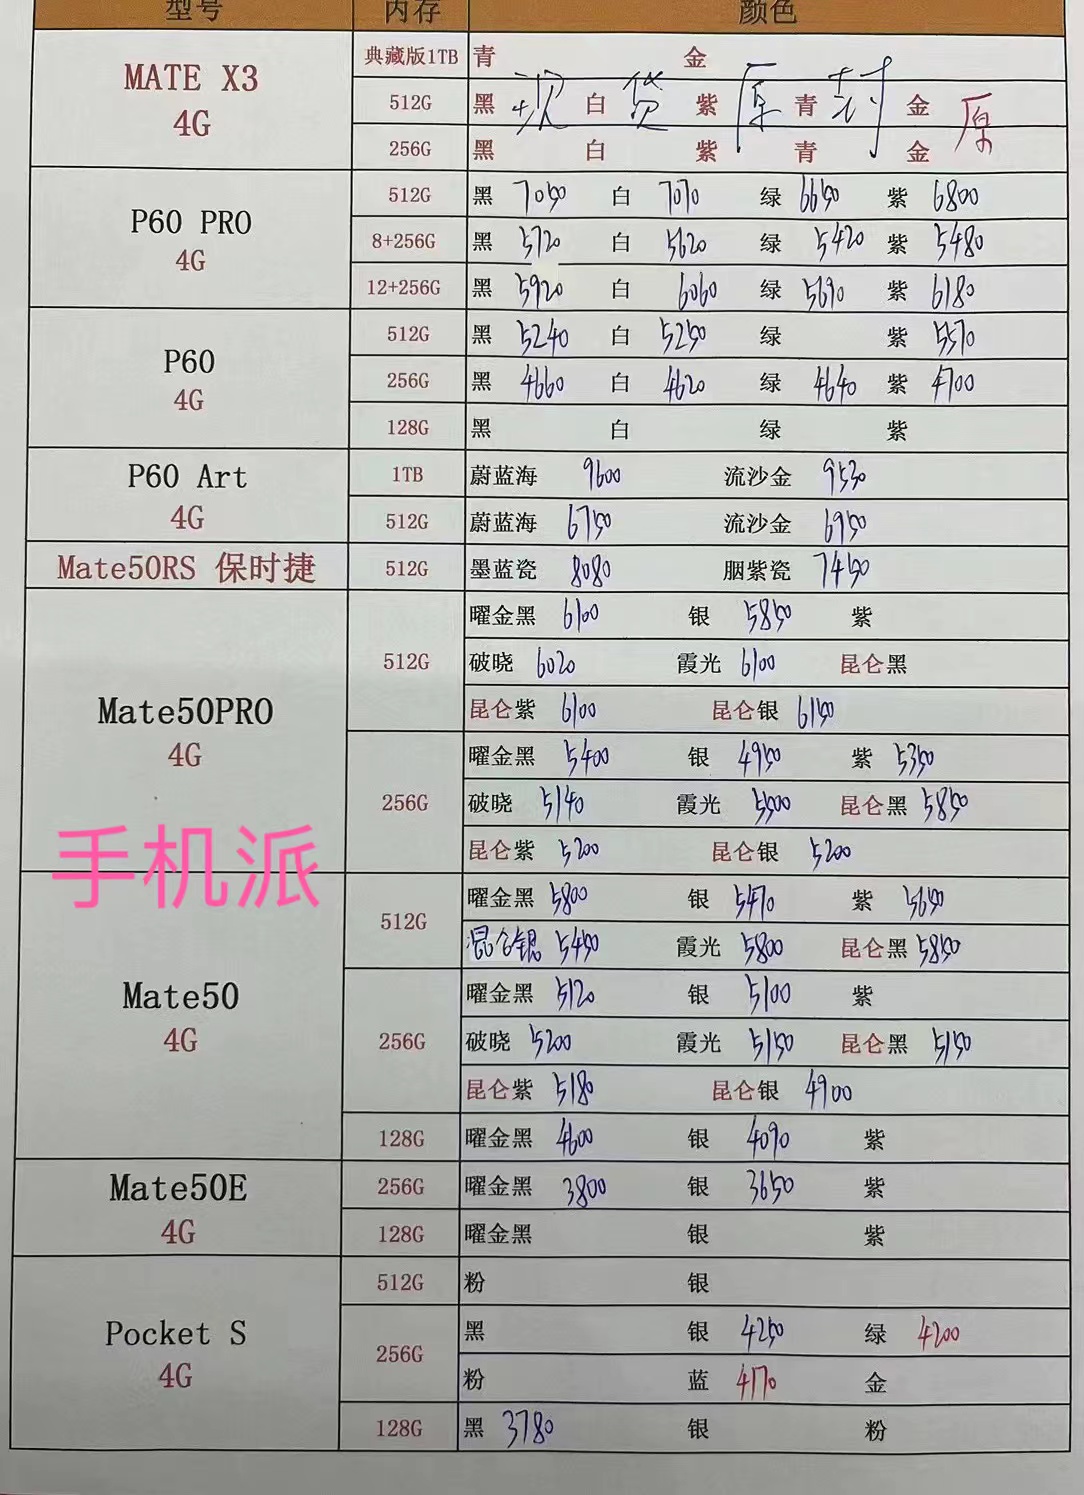 型号 内存 颜色
MATE X3 4G
典藏版1TB 青 金
512G 黑 白 紫 青 金
现货原封 原
256G 黑 白 紫 青 金
P60 PRO 4G
512G 黑 7050 白 7070 绿 6650 紫 6800
8+256G 黑 5720 白 5620 绿 5420 紫 5480
12+256G 黑 5920 白 6060 绿 5690 紫 6180
P60 4G
512G 黑 5240 白 5250 绿 紫 5570
256G 黑 4660 白 4620 绿 4640 紫 4700
128G 黑 白 绿 紫
P60 Art 4G
1TB 蔚蓝海 9600 流沙金 9530
512G 蔚蓝海 6750 流沙金 6950
Mate50RS 保时捷 512G 墨蓝瓷 8080 胭紫瓷 7450
Mate50PRO 4G
512G 曜金黑 6100 银 5850 紫
破晓 6020 霞光 6100 昆仑黑
昆仑紫 6100 昆仑银 6150
256G 曜金黑 5400 银 4950 紫 5350
破晓 5140 霞光 5500 昆仑黑 5850
昆仑紫 5200 昆仑银 5200
手机派
Mate50 4G
512G 曜金黑 5800 银 5470 紫 5650
混仑银 5450 霞光 5800 昆仑黑 5850
256G 曜金黑 5120 银 5100 紫
破晓 5200 霞光 5150 昆仑黑 5150
昆仑紫 5180 昆仑银 4900
128G 曜金黑 4600 银 4090 紫
Mate50E 4G
256G 曜金黑 3800 银 3650 紫
128G 曜金黑 银 紫
Pocket S 4G
512G 粉 银
256G 黑 银 4250 绿 4200
粉 蓝 4170 金
128G 黑 3780 银 粉